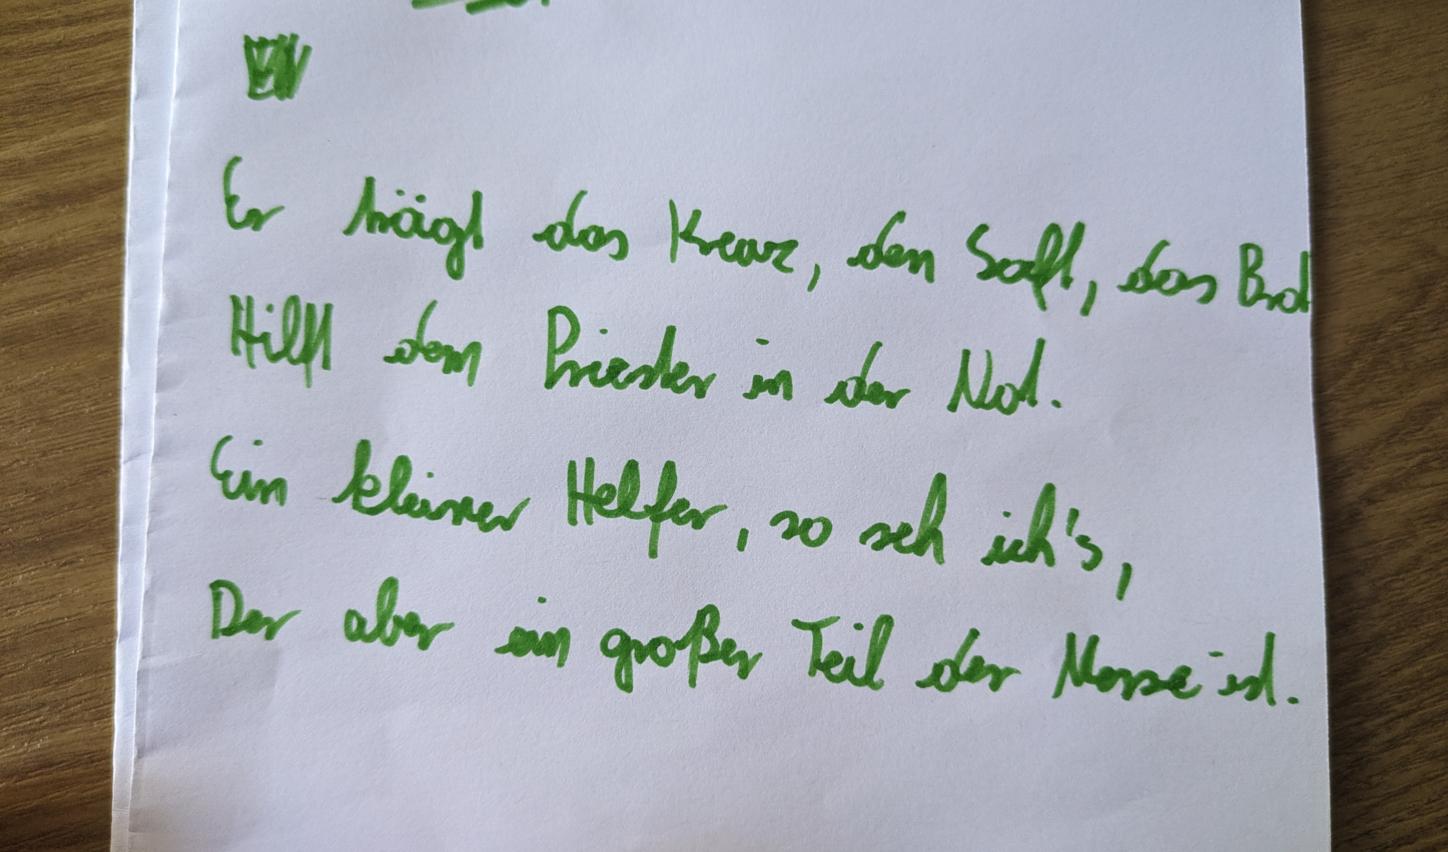 Er trägt das Kreuz, den Saft, das Brot
Hilft dem Priester in der Not.
Ein kleiner Helfer, so seh ich's,
Der aber ein großer Teil der Messe ist.